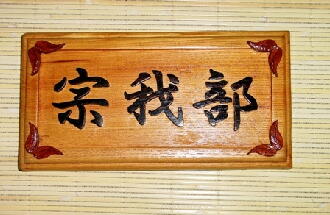 宗我部